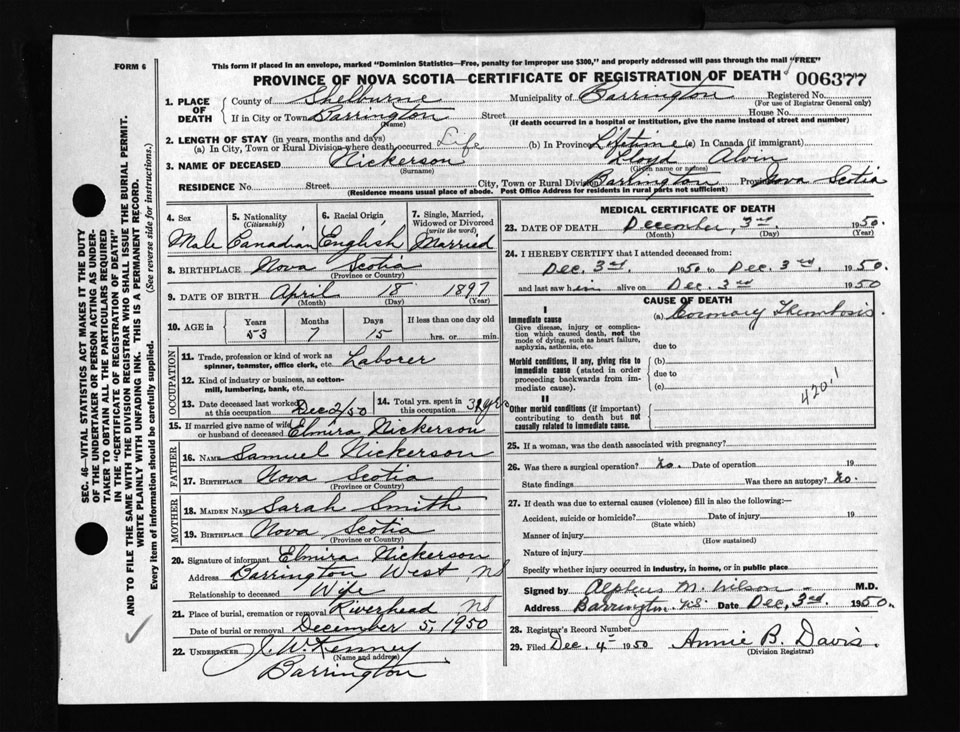 FORM 6
This form if placed in an envelope, marked "Dominion Statistics—Free, penalty for improper use $300," and properly addressed will pass through the mail "FREE"
PROVINCE OF NOVA SCOTIA—CERTIFICATE OF REGISTRATION OF DEATH 006377
1. PLACE OF DEATH
County of Shelburne Municipality of Barrington Registered No.
(For use of Registrar General only)
If in City or Town Barrington Street House No.
(Name) (If death occurred in a hospital or institution, give the name instead of street and number)
2. LENGTH OF STAY (in years, months and days)
(a) In City, Town or Rural Division where death occurred Life (b) In Province Lifetime (c) In Canada (if immigrant)
3. NAME OF DECEASED Nickerson Lloyd Alvin
(Surname) (Given name or names)
RESIDENCE No. Street City, Town or Rural Division Barrington Province Nova Scotia
(Residence means usual place of abode. Post Office Address for residents in rural parts not sufficient)
4. Sex Male
5. Nationality (Citizenship) Canadian
6. Racial Origin English
7. Single, Married, Widowed or Divorced (write the word) Married
8. BIRTHPLACE Nova Scotia
(Province or Country)
9. DATE OF BIRTH April 18 1897
(Month) (Day) (Year)
10. AGE in Years Months Days If less than one day old
53 7 15 hrs. or min.
OCCUPATION
11. Trade, profession or kind of work as spinner, teamster, office clerk, etc. Laborer
12. Kind of industry or business, as cotton-mill, lumbering, bank, etc.
13. Date deceased last worked at this occupation Dec 2/50
14. Total yrs. spent in this occupation 39 yrs
15. If married give name of wife or husband of deceased Elmira Nickerson
FATHER
16. Name Samuel Nickerson
17. Birthplace Nova Scotia
(Province or Country)
MOTHER
18. Maiden Name Sarah Smith
19. Birthplace Nova Scotia
(Province or Country)
20. Signature of informant Elmira Nickerson
Address Barrington West, NS
Relationship to deceased Wife
21. Place of burial, cremation or removal Riverhead NS
Date of burial or removal December 5, 1950
22. UNDERTAKER J. W. Kenney
(Name and address)
Barrington
MEDICAL CERTIFICATE OF DEATH
23. DATE OF DEATH December, 3rd 1950.
(Month) (Day) (Year)
24. I HEREBY CERTIFY that I attended deceased from:
Dec. 3rd 1950 to Dec. 3rd 1950.
and last saw him alive on Dec. 3rd 1950
CAUSE OF DEATH
I
Immediate cause (a) Coronary Thrombosis.
Give disease, injury or complication which caused death, not the mode of dying, such as heart failure, asphyxia, asthenia, etc.
due to
Morbid conditions, if any, giving rise to immediate cause (stated in order proceeding backwards from immediate cause).
(b)
due to
(c)
420.1
II
Other morbid conditions (if important) contributing to death but not causally related to immediate cause.
25. If a woman, was the death associated with pregnancy?
26. Was there a surgical operation? No. Date of operation 19
State findings Was there an autopsy? No.
27. If death was due to external causes (violence) fill in also the following:—
Accident, suicide or homicide? Date of injury 19
(State which)
Manner of injury
(How sustained)
Nature of injury
Specify whether injury occurred in industry, in home, or in public place
Signed by Alpheus M. Wilson M.D.
Address Barrington NS Date Dec, 3rd. 1950.
28. Registrar's Record Number
29. Filed Dec. 4th 1950 Annie B. Davis.
(Division Registrar)
SEC. 46—VITAL STATISTICS ACT MAKES IT THE DUTY
OF THE UNDERTAKER OR PERSON ACTING AS UNDER-
TAKER TO OBTAIN ALL THE PARTICULARS REQUIRED
IN THE "CERTIFICATE OF REGISTRATION OF DEATH"
AND TO FILE THE SAME WITH THE DIVISION REGISTRAR WHO SHALL ISSUE THE BURIAL PERMIT.
WRITE PLAINLY WITH UNFADING INK. THIS IS A PERMANENT RECORD.
Every item of information should be carefully supplied. (See reverse side for instructions.)